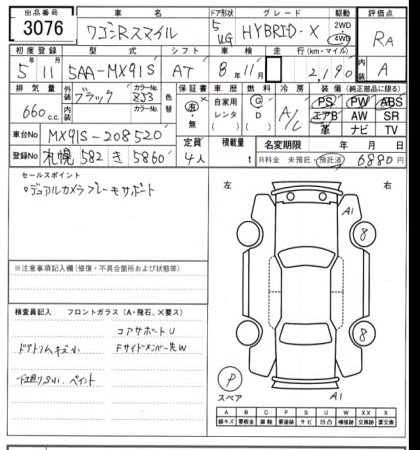 出品番号 車名 ドア形状 グレード 駆動 評価点
3076 ワゴンRスマイル 5 WG HYBRID・X 2WD 4WD RA
初度登録 型式 シフト 車検 走行(km・マイル) 内装
5年11月 5AA-MX91S AT 8年11月 2,190 A
排気量 外装 ブラック カラーNo. Z53 色替 保証書 車歴 燃料 冷房 装備(純正部品に限る)
660cc. 内装 カラーNo. 有・無 自家用 レンタ G D A/C PS PW ABS
エアB AW SR
革 ナビ TV
車台No MX91S-208520 定員 積載量 名変期限 年 月 日
登録No 札幌 582 き 5860 4人 t R料金 未預託 預託済 6880円
セールスポイント
デュアルカメラブレーキサポート
左 右
A1
8
※注意事項記入欄(修復・不具合箇所および状態)
検査員記入 フロントガラス(A・飛石、X要ス)
コアサポートU
ドアトリムキズ小 Fサイドメンバー先W
下廻りS小、ペイント
8
P
スペア
A1
A B C P S U W X XX
線キズ 要板金 腐蝕 要塗装 サビ 凹凸 補修跡 交換跡 要交換